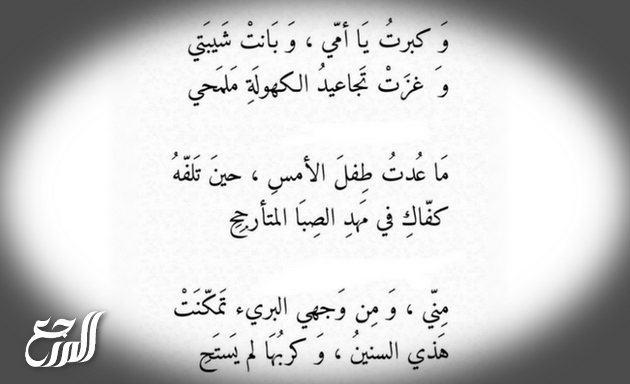 وَ كبرتُ يَا أمّي ، وَ بَانتْ شَيبَتي
وَ غزَتْ تَجاعيدُ الكهولَةِ مَلمَحي
مَا عُدتُ طِفلَ الأمسِ ، حينَ تَلفّهُ
كفّاكِ في مَهدِ الصِبَا المتأرجِحِ
مِنّي ، وَ مِن وَجهي البريء تَمكّنَتْ
هَذي السنينُ ، وَ كربُهَا لم يَستَحِ
المرجع